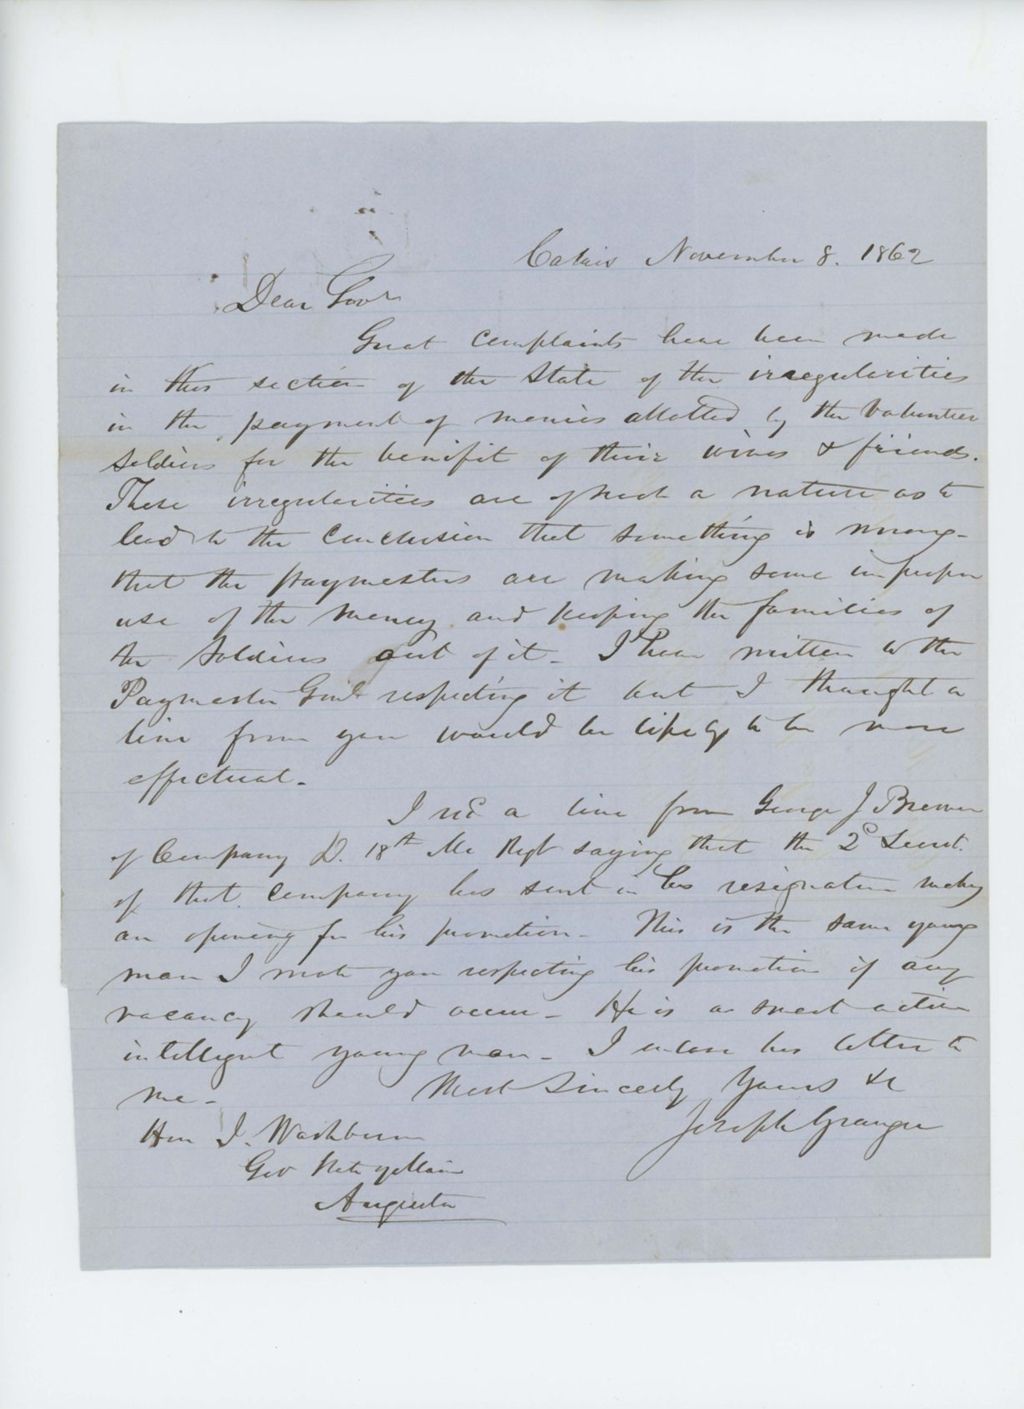 Calais November 8. 1862
Dear Govr
Great complaints have been made
in this section of the State of the irregularities
in the payment of monies allotted by the Volunteer
Soldiers for the benifit of their wives & friends.
These irregularities are of such a nature as to
lead to the conclusion that something is wrong-
that the paymasters are making some improper
use of the money and keeping the families of
the Soldiers out of it- I have written to the
Paymaster Genl respecting it but I thought a
line from you would be likely to be more
effectual-
I recd a line from George J Brewer
of Company D. 18th Me Regt saying that the 2d Lieut.
of that company has sent in his resignation making
an opening for his promotion- This is the same young
man I wrote you respecting his promotion if any
vacancy should occur- He is a smart active
intelligent young man- I inclose his letter to
me- Most Sincerely Yours &c
Joseph Granger
Hon I. Washburn
Gov State of Maine
Augusta